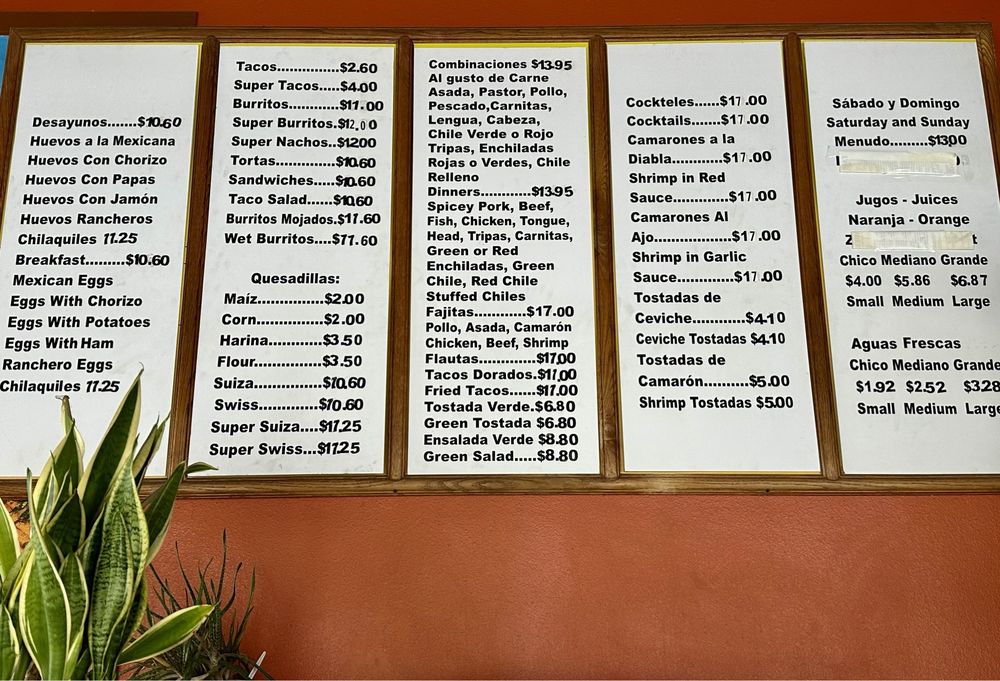 Desayunos.......$10.60
Huevos a la Mexicana
Huevos Con Chorizo
Huevos Con Papas
Huevos Con Jamón
Huevos Rancheros
Chilaquiles 11.25
Breakfast.........$10.60
Mexican Eggs
Eggs With Chorizo
Eggs With Potatoes
Eggs With Ham
Ranchero Eggs
Chilaquiles 11.25
Tacos...............$2.60
Super Tacos.....$4.00
Burritos............$11.00
Super Burritos.$12.00
Super Nachos..$12.00
Tortas...............$10.60
Sandwiches.....$10.60
Taco Salad.......$10.60
Burritos Mojados.$11.60
Wet Burritos....$11.60
Quesadillas:
Maíz................$2.00
Corn................$2.00
Harina.............$3.50
Flour...............$3.50
Suiza...............$10.60
Swiss..............$10.60
Super Suiza....$11.25
Super Swiss...$11.25
Combinaciones $13.95
Al gusto de Carne
Asada, Pastor, Pollo,
Pescado,Carnitas,
Lengua, Cabeza,
Chile Verde o Rojo
Tripas, Enchiladas
Rojas o Verdes, Chile
Relleno
Dinners.............$13.95
Spicey Pork, Beef,
Fish, Chicken, Tongue,
Head, Tripas, Carnitas,
Green or Red
Enchiladas, Green
Chile, Red Chile
Stuffed Chiles
Fajitas..............$17.00
Pollo, Asada, Camarón
Chicken, Beef, Shrimp
Flautas..............$17.00
Tacos Dorados.$17.00
Fried Tacos......$17.00
Tostada Verde.$6.80
Green Tostada $6.80
Ensalada Verde $8.80
Green Salad.....$8.80
Cockteles......$17.00
Cocktails.......$17.00
Camarones a la
Diabla............$17.00
Shrimp in Red
Sauce............$17.00
Camarones Al
Ajo.................$17.00
Shrimp in Garlic
Sauce............$17.00
Tostadas de
Ceviche..........$4.10
Ceviche Tostadas $4.10
Tostadas de
Camarón.........$5.00
Shrimp Tostadas $5.00
Sábado y Domingo
Saturday and Sunday
Menudo..........$13.00
Jugos - Juices
Naranja - Orange
Chico Mediano Grande
$4.00 $5.86 $6.87
Small Medium Large
Aguas Frescas
Chico Mediano Grande
$1.92 $2.52 $3.28
Small Medium Large